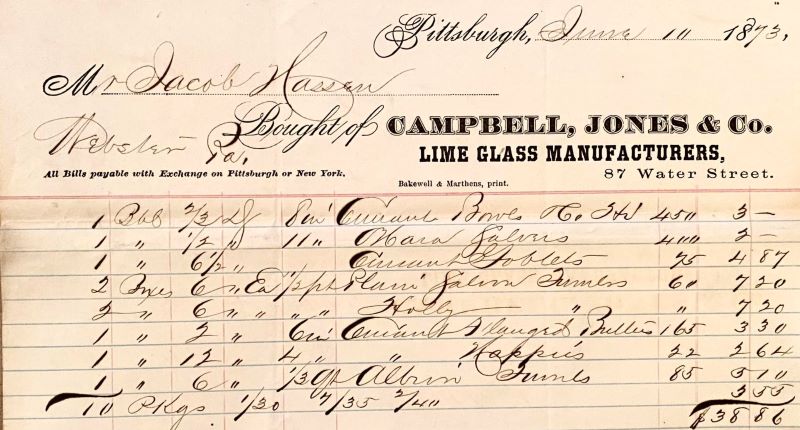 Pittsburgh, June 11" 1873.
Mr Jacob Hassen
Webster Pa.
Bought of CAMPBELL, JONES & Co.
LIME GLASS MANUFACTURERS,
All Bills payable with Exchange on Pittsburgh or New York.
87 Water Street.
Bakewell & Marthens, print.
1 2/3 8in Currant Bowls 450 3 —
1 " 1/2 " 11 " Ohara Salvers 400 2 —
1 " 6 1/2 " Currant Goblets 75 4 87
2 Boxes 6 " Ea 1/2 pt Plain Saloon 60 7 20
2 " 6 " " " " Holly " " 7 20
1 " 2 " 6in Currant Flanged 165 3 30
1 " 12 " 4 " " Nappies 22 2 64
1 " 6 " 1/3 qt 85 5 10
3 55
10 Pkgs 1/30 4/35 2/40
$38 86